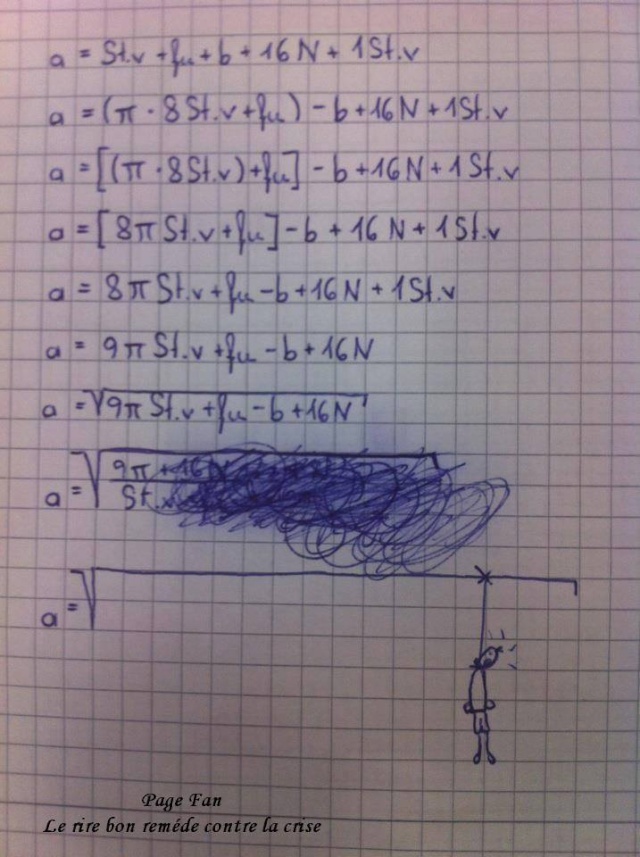 a = St.v + fu + b + 16 N + 1 St.v
a = (π · 8 St.v + fu) - b + 16 N + 1 St.v
a = [(π · 8 St.v) + fu] - b + 16 N + 1 St.v
a = [8π St.v + fu] - b + 16 N + 1 St.v
a = 8π St.v + fu - b + 16 N + 1 St.v
a = 9π St.v + fu - b + 16 N
a = √9π St.v + fu - b + 16 N
a = √9π + 16 N
St.
a = √
Page Fan
Le rire bon reméde contre la crise